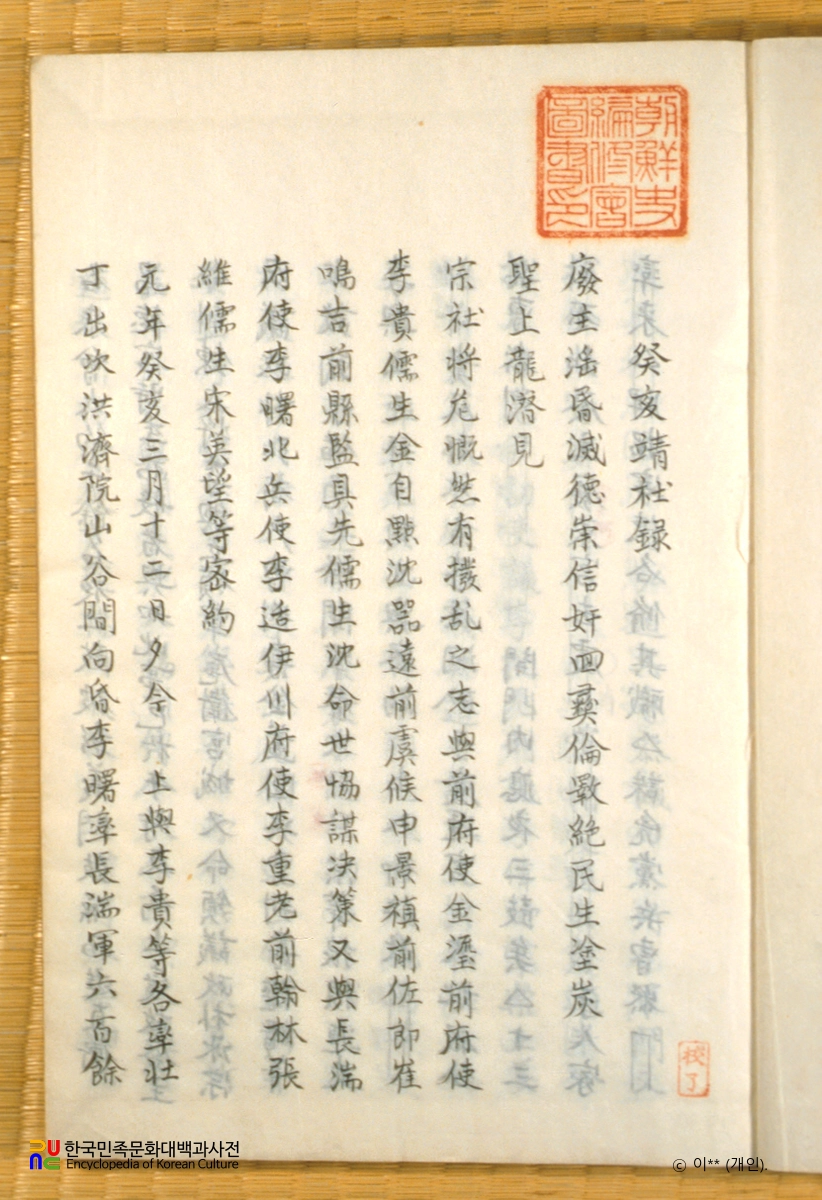 朝鮮史
編修會
圖書印
癸亥靖社録
廢主滛昏滅德崇信奸回彛倫斁絶民生塗炭
聖上龍潜見
宗社将危慨然有撥乱之志與前府使金瑬前府使
李貴儒生金自點沈器遠前虞候申景禛前佐郎崔
鳴吉前縣監具先儒生沈命世恊謀决策又與長湍
府使李曙北兵使李适伊川府使李重老前翰林張
維儒生宋英望等宻約
元年癸亥三月十二日夕今上與李貴等各率壮
丁出次洪濟院山谷間向昏李曙率長湍軍六百餘
校了
한국민족문화대백과사전
Encyclopedia of Korean Culture
© 이** (개인).